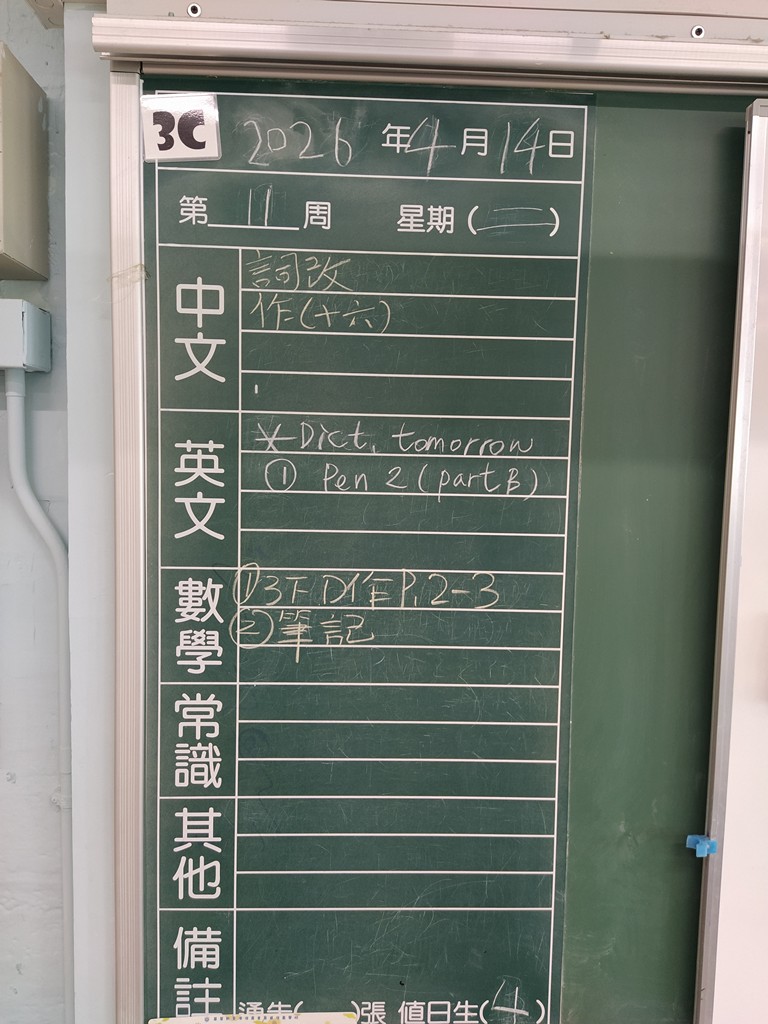 3C
2026年4月14日
第11周 星期(二)
中文
詞改
作(十六)
英文
* Dict. tomorrow
① Pen 2 (part B)
數學
①3下D作P.2-3
②筆記
常識
其他
備註
通告( )張 值日生(4)